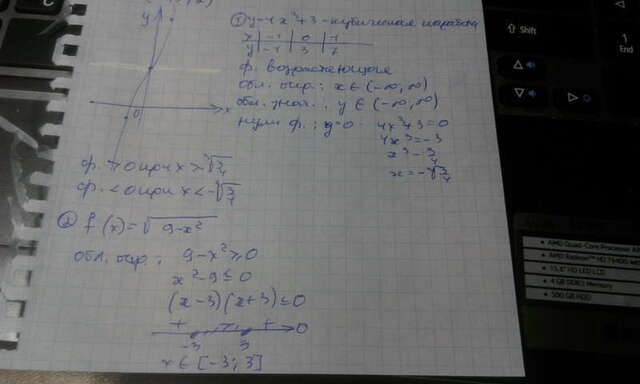 ① y=4x³+3 - кубическая парабола
x | -1 | 0 | 1
y | -1 | 3 | 7
ф. возрастающая
обл. опр.: x ∈ (-∞, ∞)
обл. знач.: y ∈ (-∞, ∞)
нули ф.: y=0 4x³+3=0
4x³=-3
x³=-3/4
x=-∛3/4
y
x
0
ф. >0 при x > -∛3/4
ф. <0 при x < -∛3/4
② f(x)=√9-x²
обл. опр.: 9-x²≥0
x²-9≤0
(x-3)(x+3)≤0
+ - + 0
-3 3
x ∈ [-3; 3]
Shift
1
End
AMD Quad-Core
AMD Radeon™ HD
15.6" HD LED LCD
4 GB DDR3 Memory
500 GB HDD